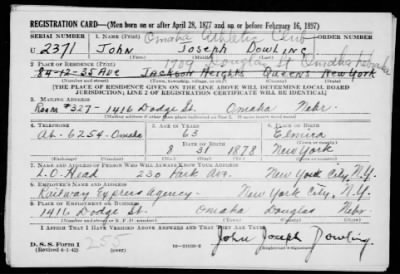 REGISTRATION CARD—(Men born on or after April 28, 1877 and on or before February 16, 1897)
SERIAL NUMBER 1. NAME (Print) Omaha Athletic Club ORDER NUMBER
U 2371 John Joseph Dowling
(First) (Middle) (Last)
1709 Douglas St Omaha Nebraska
2. PLACE OF RESIDENCE (Print)
84-12-35 Ave Jackson Heights Queens New York
(Number and street) (Town, township, village, or city) (County) (State)
[THE PLACE OF RESIDENCE GIVEN ON THE LINE ABOVE WILL DETERMINE LOCAL BOARD
JURISDICTION; LINE 2 OF REGISTRATION CERTIFICATE WILL BE IDENTICAL]
3. MAILING ADDRESS
Room #327-1416 Dodge St. Omaha Nebr.
4. TELEPHONE 5. AGE IN YEARS 6. PLACE OF BIRTH
At. 6254-Omaha 63 Elmira
DATE OF BIRTH
8 31 1878 New York
(Exchange) (Number) (Mo.) (Day) (Yr.) (State or country)
7. NAME AND ADDRESS OF PERSON WHO WILL ALWAYS KNOW YOUR ADDRESS
L.O. Head 230 Park Ave. New York City, N.Y.
8. EMPLOYER'S NAME AND ADDRESS
Railway Express Agency - New York City, N.Y.
9. PLACE OF EMPLOYMENT OR BUSINESS
1416 Dodge St. Omaha Douglas Nebr.
(Number and street or R. F. D. number) (Town) (County) (State)
I AFFIRM THAT I HAVE VERIFIED ABOVE ANSWERS AND THAT THEY ARE TRUE.
D. S. S. Form 1
(Revised 4-1-42) (over)
255
John Joseph Dowling
(Registrant's signature)